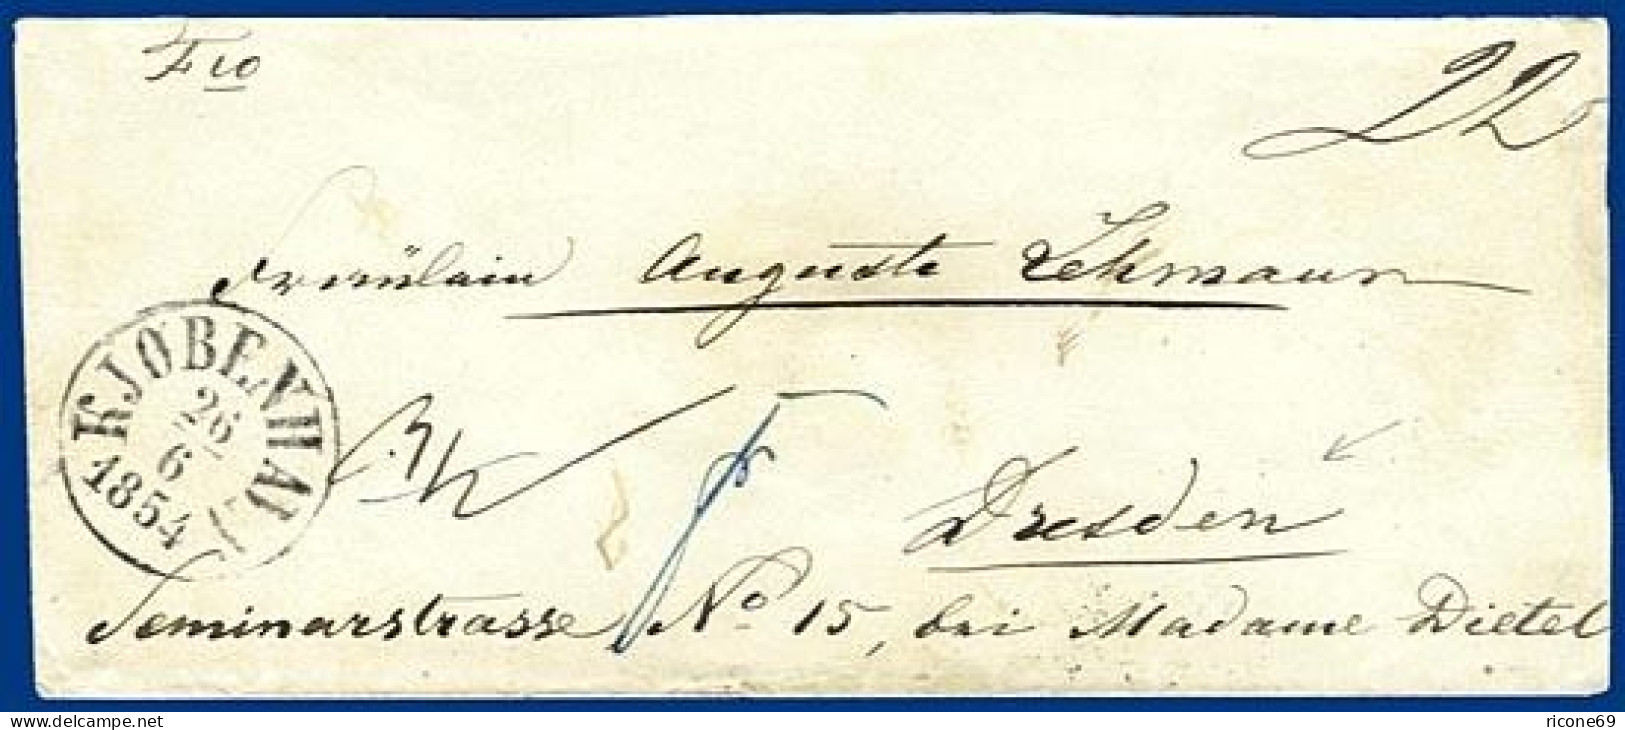 Fro
22
Fräulein Auguste Lehmann
KJØBENHAVN
26
6
1854
Dresden
Seminarstrasse No 15, bei Madame Dietel
www.delcampe.net
ricone69